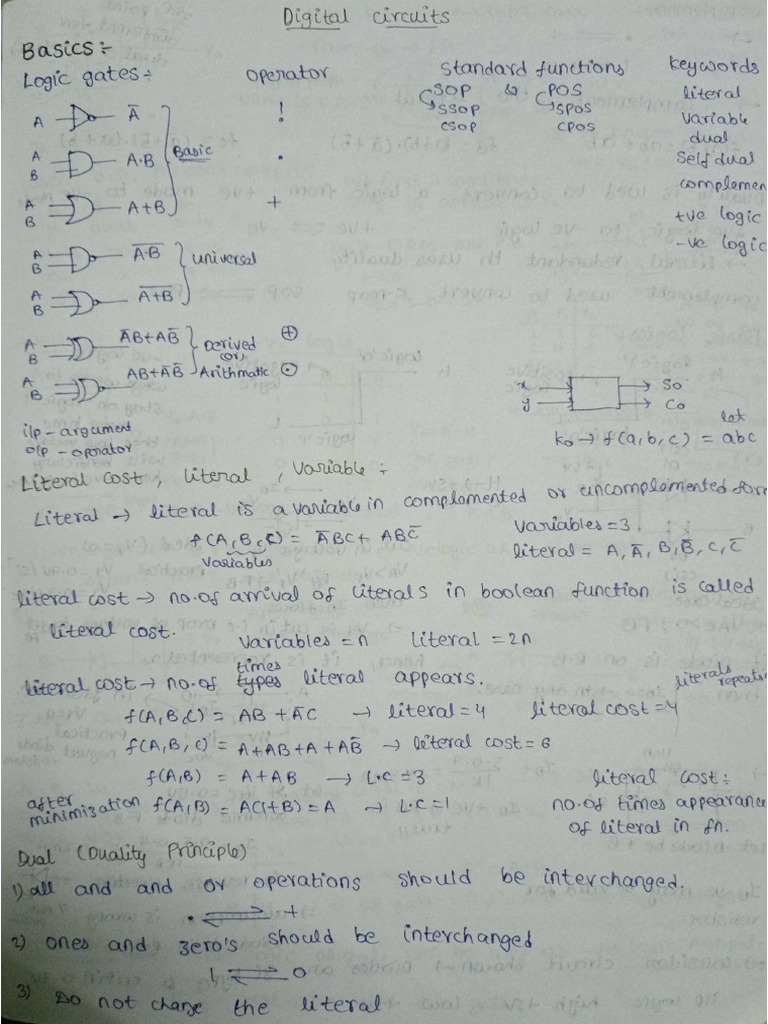 Digital circuits
Basics :-
Logic gates :- operator Standard functions keywords
SOP POS literal
SSOP SPOS variable
CSOP CPOS dual
Self dual
complemen
+ve logic
-ve logic
A Ā !
A B A·B Basic ·
A B A+B +
A B \overline{A·B} universal
A B \overline{A+B}
A B ĀB+AB̄ Derived ⊕
(or)
A B AB+ĀB̄ Arithmatic ⊙
x So
y Co
i/p - argument
o/p - operator
let
→ f(a,b,c) = abc
Literal cost, literal, variable :-
Literal → literal is a variable in complemented or uncomplemented form
f(A,B,C) = ĀBC + ABC̄ variables = 3
variables literal = A, Ā, B, B̄, C, C̄
literal cost → no.of arrival of literals in boolean function is called
literal cost.
variables = n literal = 2n
times
literal cost → no.of types literal appears. literals
f(A,B,C) = AB + ĀC → literal = 4 literal cost = 4
f(A,B,C) = A+AB+A+AB̄ → literal cost = 6
f(A,B) = A+AB → L·C = 3 literal cost :-
after
minimization f(A,B) = A(1+B) = A → L·C = 1 no.of times appearance
of literal in fn.
Dual (Duality Principle)
1) all and and or operations should be interchanged.
· ⇌ +
2) ones and zero's should be interchanged
1 ⇌ 0
3) Do not change the literal